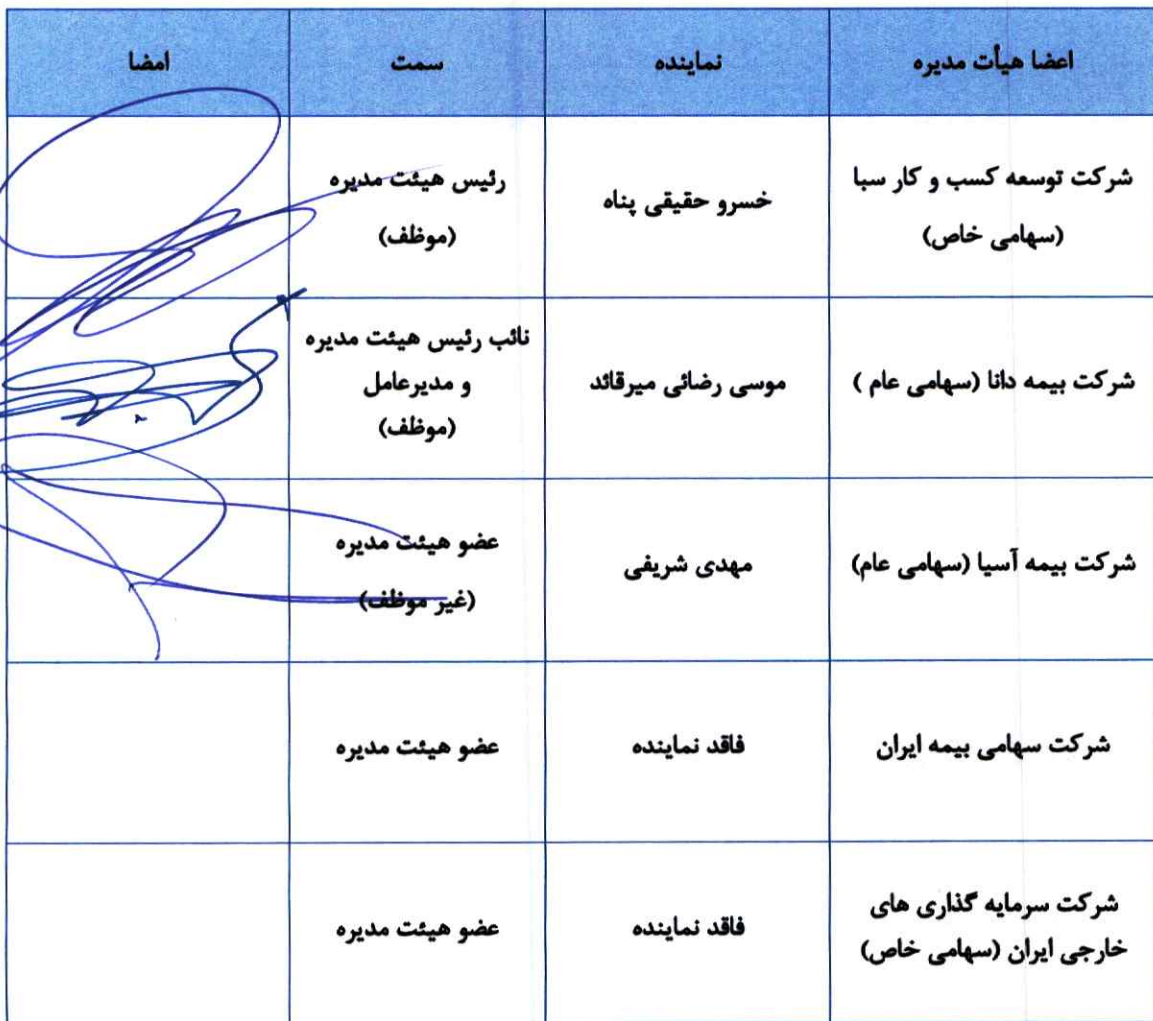 اعضا هیأت مدیره
نماینده
سمت
امضا
شرکت توسعه کسب و کار سبا
(سهامی خاص)
خسرو حقیقی پناه
رئیس هیئت مدیره
(موظف)
شرکت بیمه دانا (سهامی عام )
موسی رضائی میرقائد
نائب رئیس هیئت مدیره
و مدیرعامل
(موظف)
شرکت بیمه آسیا (سهامی عام)
مهدی شریفی
عضو هیئت مدیره
(غیر موظف)
شرکت سهامی بیمه ایران
فاقد نماینده
عضو هیئت مدیره
شرکت سرمایه گذاری های
خارجی ایران (سهامی خاص)
فاقد نماینده
عضو هیئت مدیره